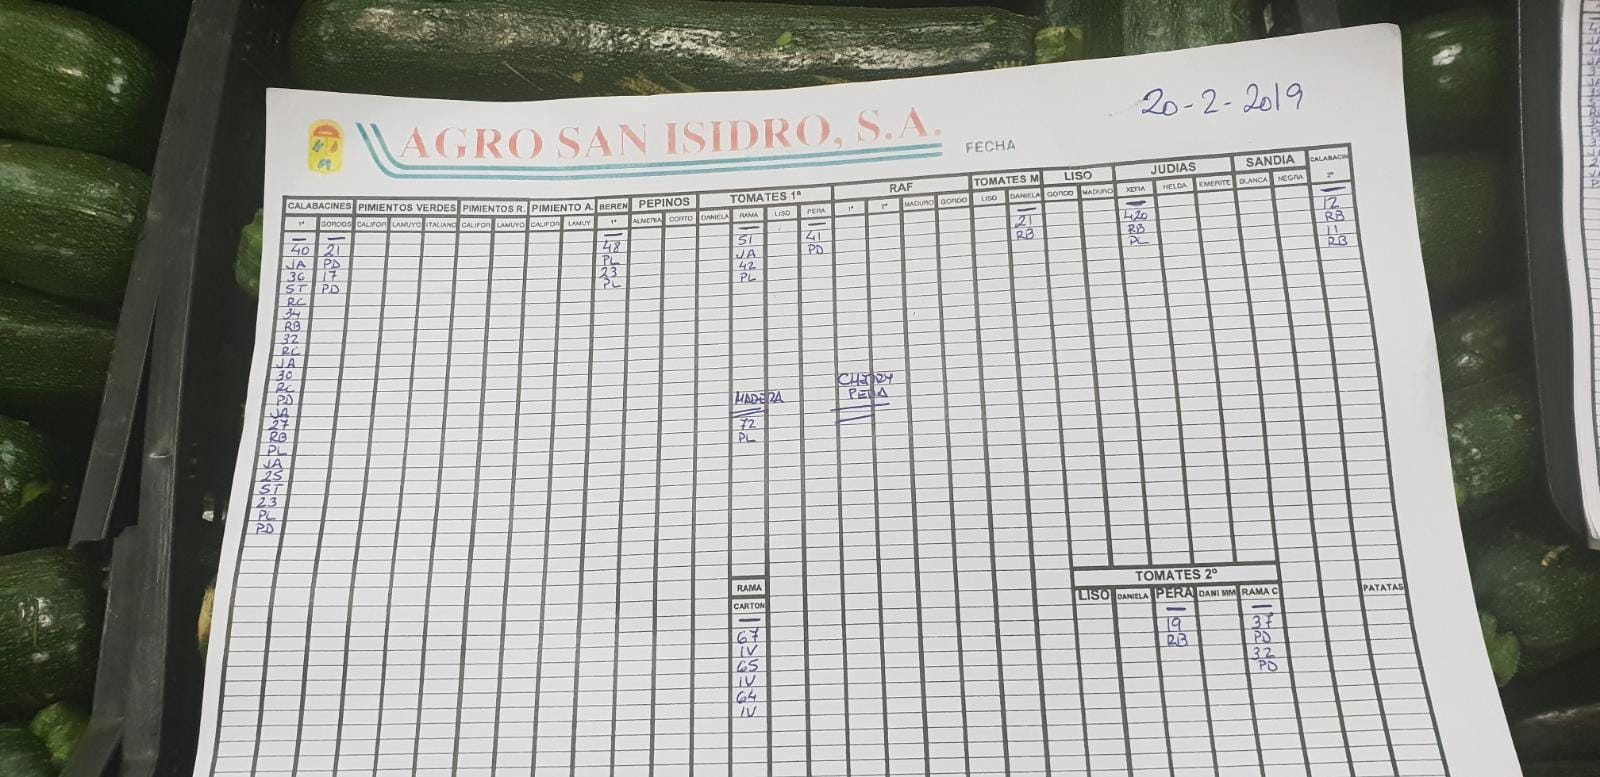 20-2-2019
AGRO SAN ISIDRO, S.A.
FECHA
CALABACINES PIMIENTOS VERDES PIMIENTOS R. PIMIENTO A. BEREN PEPINOS TOMATES 1ª RAF TOMATES M LISO JUDIAS SANDIA CALABACIN
1ª GORDOS CALIFOR LAMUYO ITALIANO CALIFOR LAMUYO CALIFOR LAMUY 1ª ALMERIA CORTO DANIELA RAMA LISO PERA 1ª MADURO GORDO LISO DANIELA GORDO MADURO XERA HELDA EMERITE BLANCA NEGRA 2ª
40 21 48 51 41 21 420 12
JA PD PL JA PD RB RB RB
36 17 23 42 PL 11
ST PD PL PL RB
RC
34
RB
32
RC
JA
30
RC
PD
JA
27
RB
PL
JA
25
ST
23
PL
PD
MADERA
72
PL
CHERRY
PERA
RAMA
CARTON
67
IV
65
IV
64
IV
TOMATES 2º
LISO DANIELA PERA DANI MM RAMA C
19 37
RB PD
32
PD
PATATAS